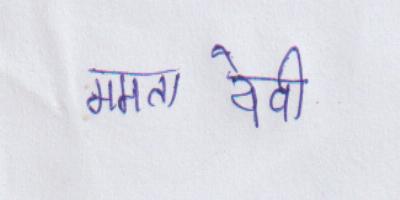 ममता देवी